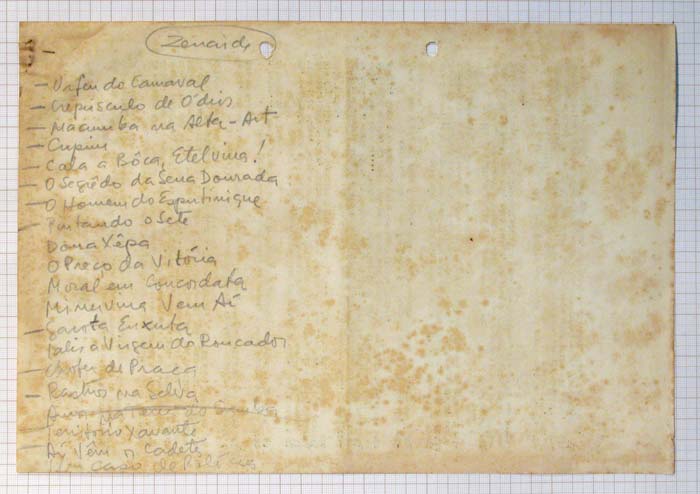 Zenaide
— do Carnaval
— Crepúsculo de Ódios
— Macumba na Alta - Art
— Cupim
— Cala a Bôca, Etelvina!
— O Segrêdo da Serra Dourada
— O Homem do Esputinique
— Pintando o Sete
Dona Xêpa
O Preço da Vitória
Moral em Concordata
Minervina Vem Aí
— Garota Enxuta
a Virgem do Roncador
— Chofer de Praça
— Rastros na Selva
— Território Xavante
— Aí Vêm os Cadetes
Caso de Polícia